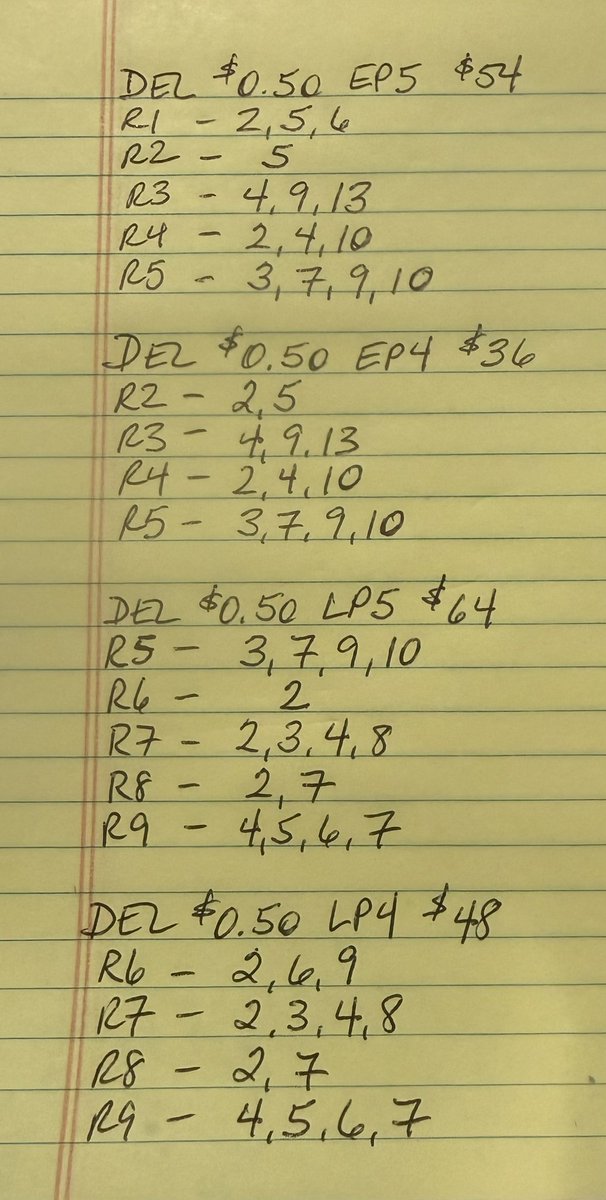 DEL $0.50 EP5 $54
R1 - 2, 5, 6
R2 - 5
R3 - 4, 9, 13
R4 - 2, 4, 10
R5 - 3, 7, 9, 10
DEL $0.50 EP4 $36
R2 - 2, 5
R3 - 4, 9, 13
R4 - 2, 4, 10
R5 - 3, 7, 9, 10
DEL $0.50 LP5 $64
R5 - 3, 7, 9, 10
R6 - 2
R7 - 2, 3, 4, 8
R8 - 2, 7
R9 - 4, 5, 6, 7
DEL $0.50 LP4 $48
R6 - 2, 6, 9
R7 - 2, 3, 4, 8
R8 - 2, 7
R9 - 4, 5, 6, 7